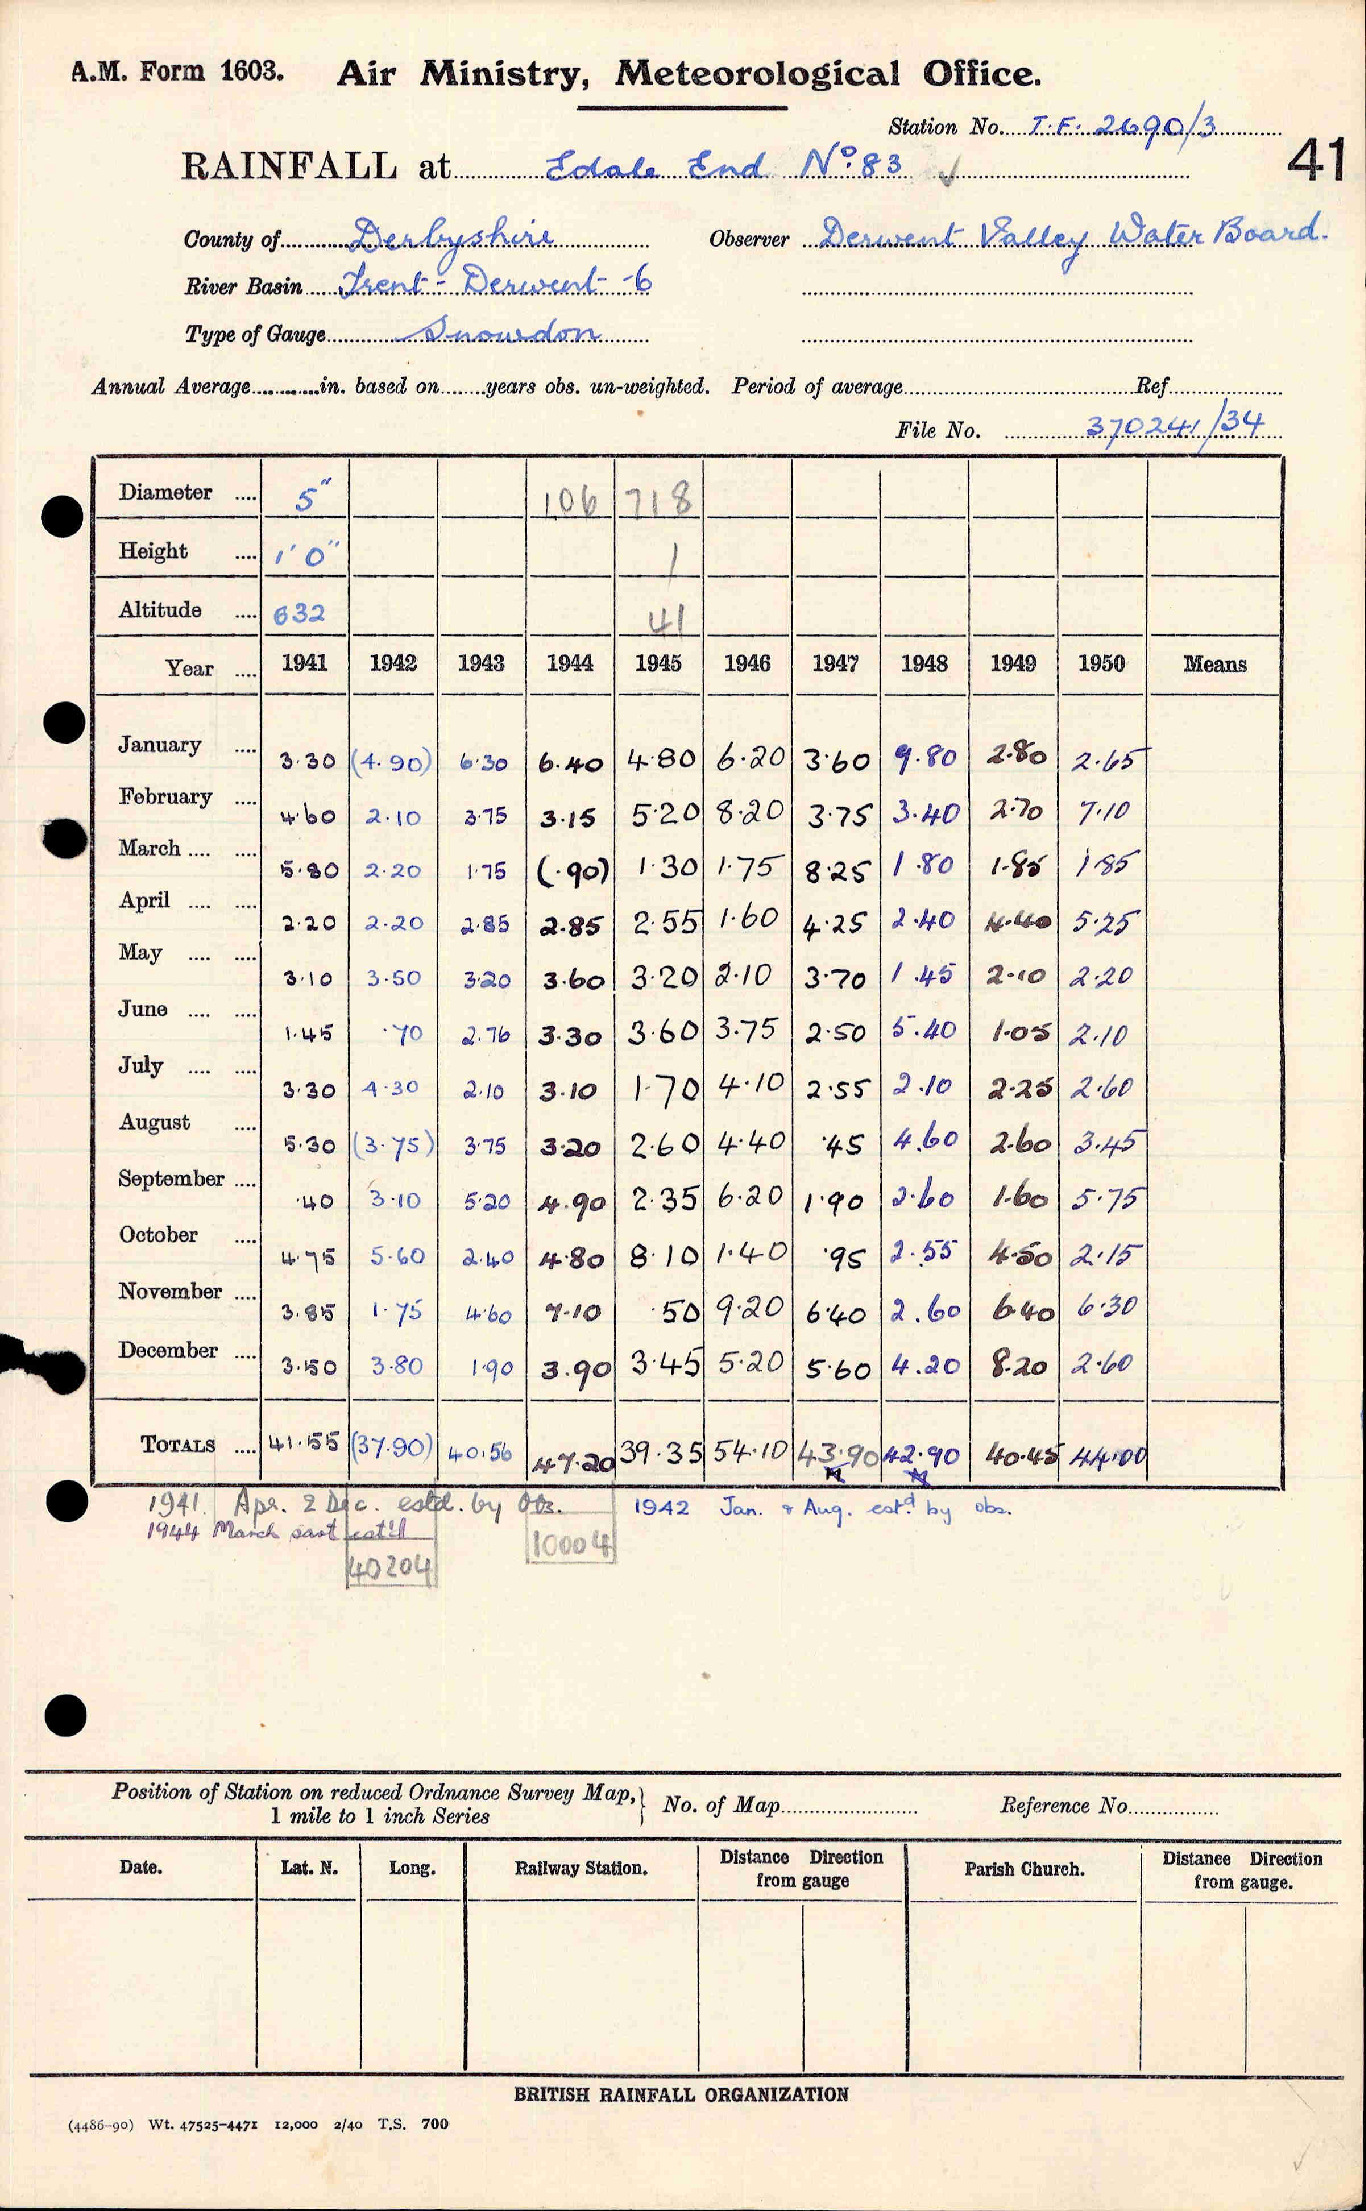 A.M. Form 1603. Air Ministry, Meteorological Office.
Station No. T.F. 2690/3
41
RAINFALL at Edale End No. 83 ✓
County of Derbyshire Observer Derwent Valley Water Board.
River Basin Trent - Derwent - 6
Type of Gauge Snowdon
Annual Average in. based on years obs. un-weighted. Period of average Ref
File No. 370241/34
Diameter .... 5" 106 718
Height .... 1' 0" 1
Altitude .... 632 41
Year .... 1941 1942 1943 1944 1945 1946 1947 1948 1949 1950 Means
January .... 3.30 (4.90) 6.30 6.40 4.80 6.20 3.60 9.80 2.80 2.65
February .... 4.60 2.10 3.75 3.15 5.20 8.20 3.75 3.40 2.70 7.10
March .... .... 5.80 2.20 1.75 (.90) 1.30 1.75 8.25 1.80 1.85 1.85
April .... .... 2.20 2.20 2.85 2.85 2.55 1.60 4.25 2.40 4.40 5.25
May .... .... 3.10 3.50 3.20 3.60 3.20 2.10 3.70 1.45 2.10 2.20
June .... .... 1.45 .70 2.76 3.30 3.60 3.75 2.50 5.40 1.05 2.10
July .... .... 3.30 4.30 2.10 3.10 1.70 4.10 2.55 2.10 2.25 2.60
August .... 5.30 (3.75) 3.75 3.20 2.60 4.40 .45 4.60 2.60 3.45
September .... .40 3.10 5.20 4.90 2.35 6.20 1.90 2.60 1.60 5.75
October .... 4.75 5.60 2.40 4.80 8.10 1.40 .95 2.55 4.50 2.15
November .... 3.85 1.75 4.60 7.10 .50 9.20 6.40 2.60 6.40 6.30
December .... 3.50 3.80 1.90 3.90 3.45 5.20 5.60 4.20 8.20 2.60
TOTALS .... 41.55 (37.90) 40.56 47.20 39.35 54.10 43.90 42.90 40.45 44.00
1941 Apr. & Dec. estd. by Obs. 1942 Jan. & Aug. estd by obs.
1944 March part estd
10004
40204
Position of Station on reduced Ordnance Survey Map, 1 mile to 1 inch Series } No. of Map Reference No.
Date. Lat. N. Long. Railway Station. Distance Direction from gauge Parish Church. Distance Direction from gauge.
BRITISH RAINFALL ORGANIZATION
(4486-90) Wt. 47525-4471 12,000 2/40 T.S. 700